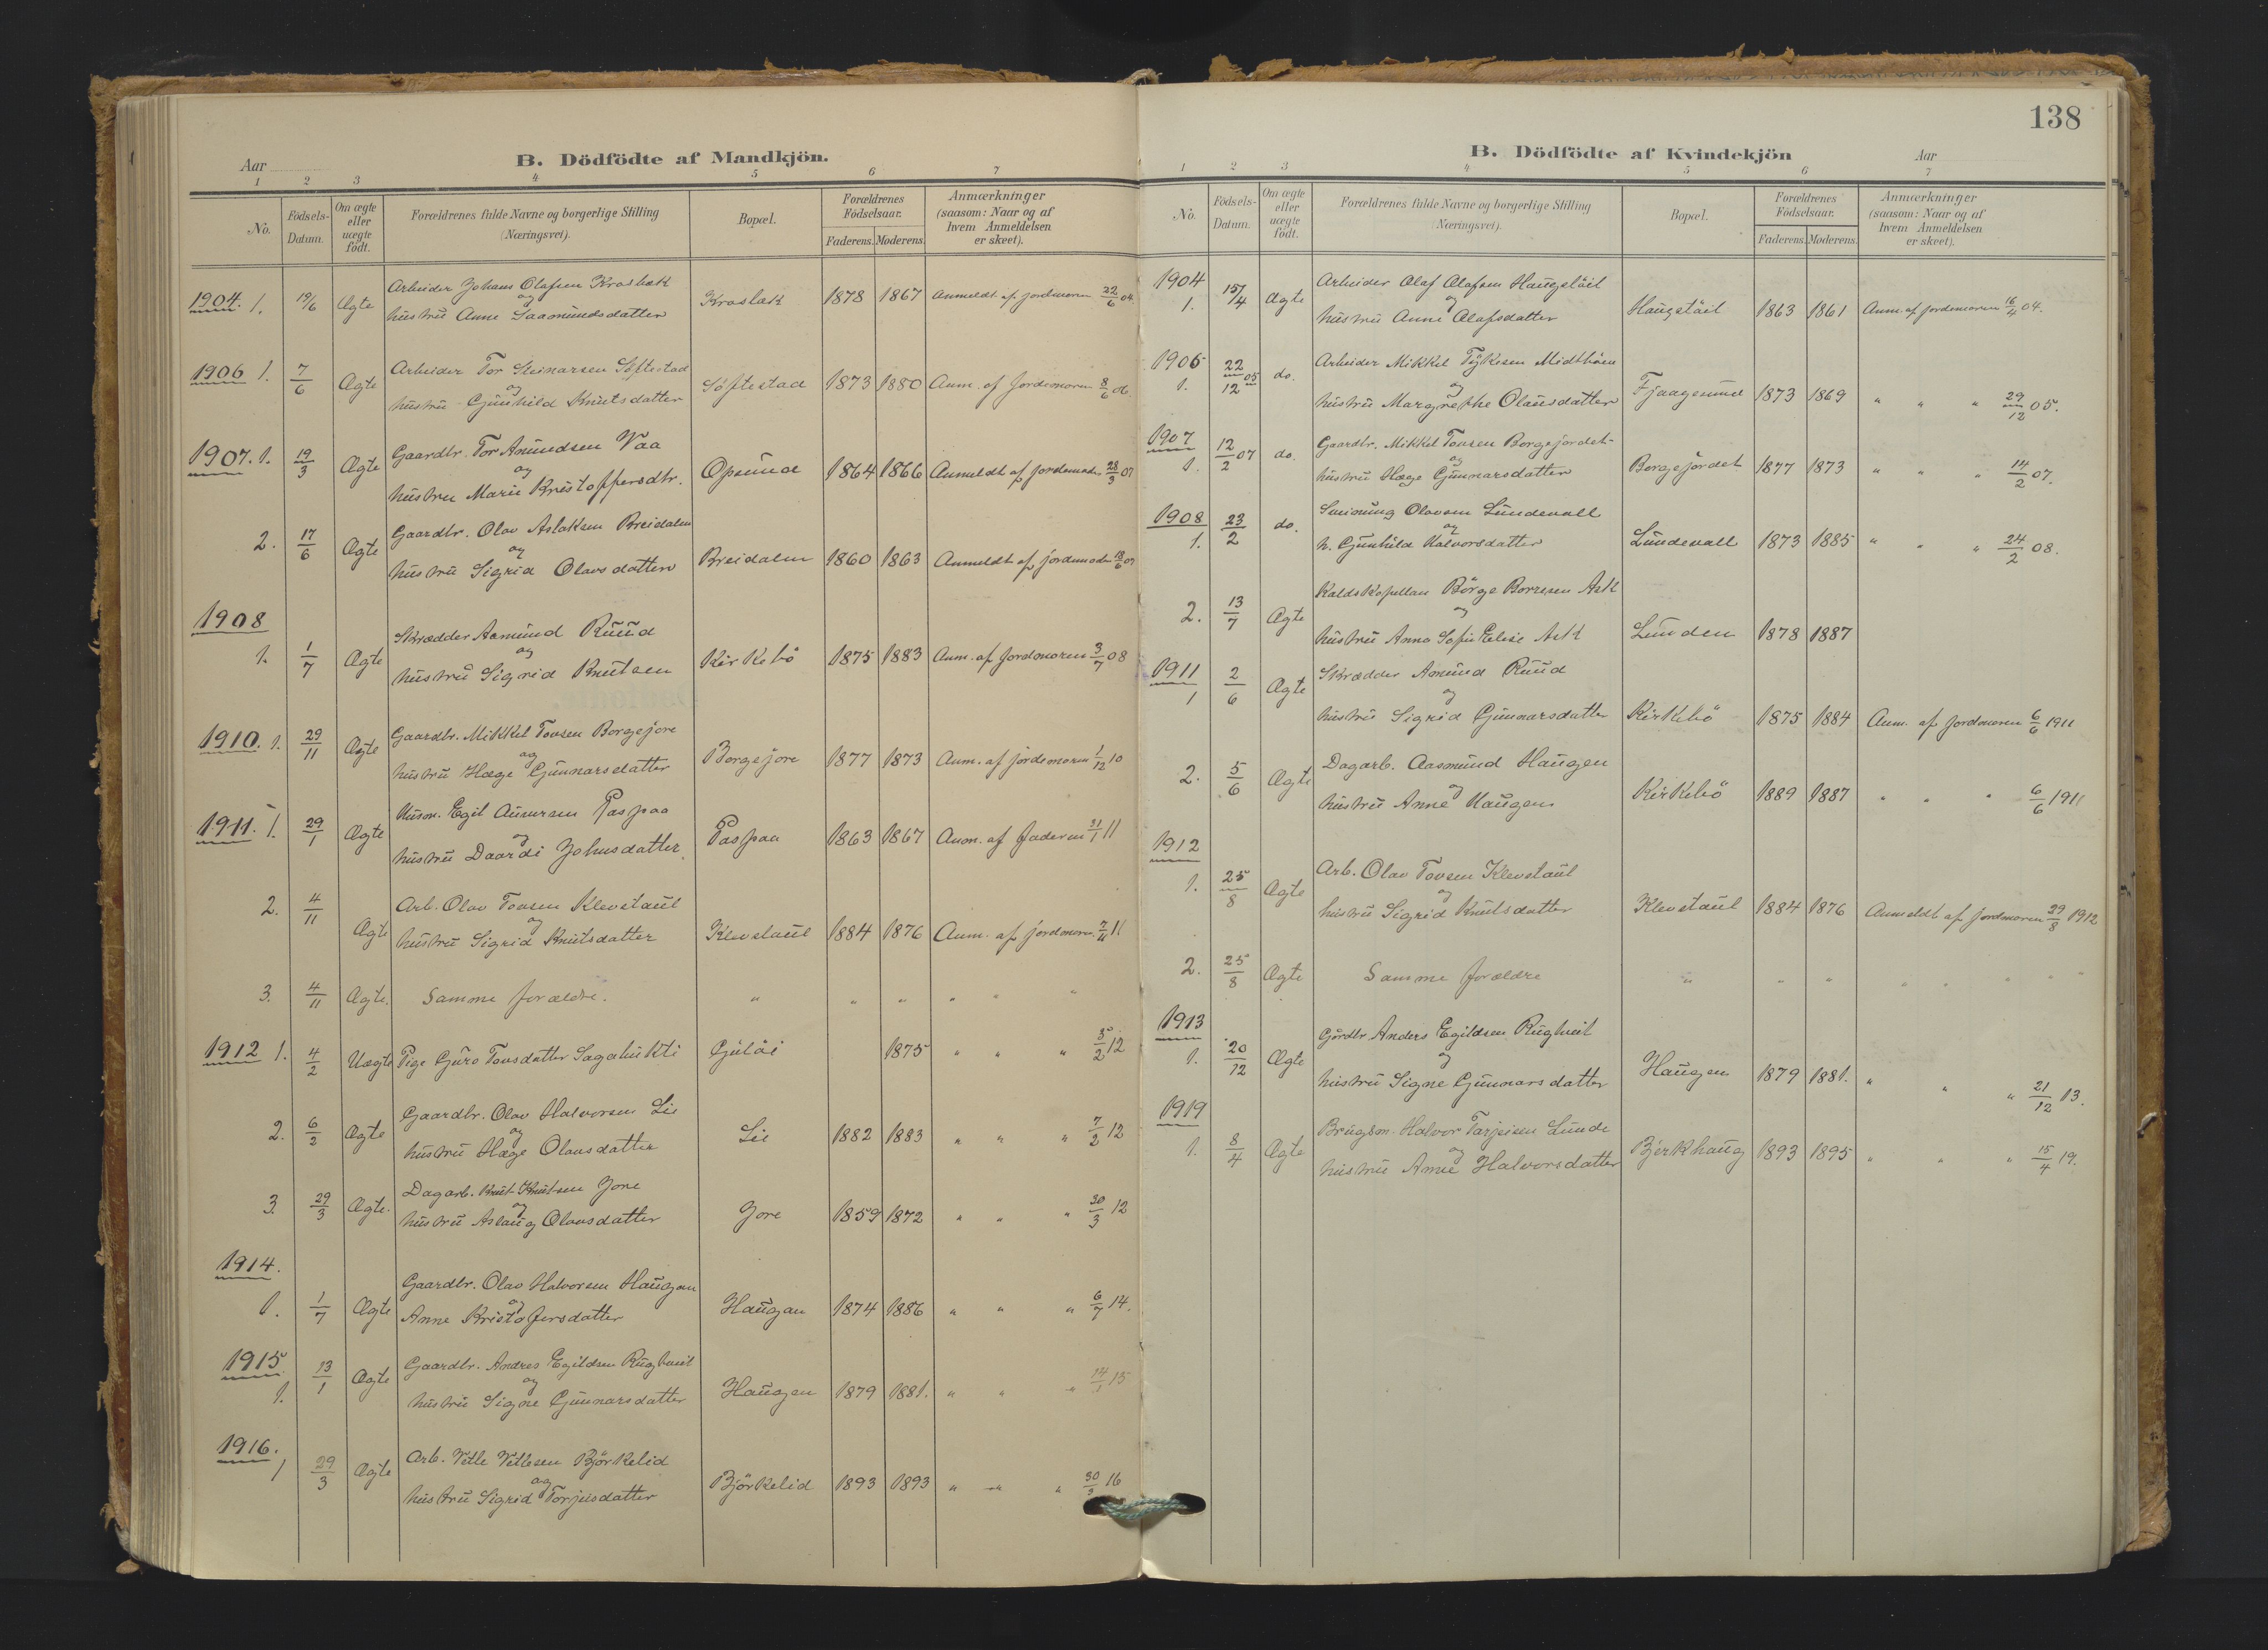 Aar
B. Dödfödte af Mandkjön.
1 2 3 4 5 6 7
No.
Födsels-Datum.
Om ægte eller uægte født.
Forældrenes fulde Navne og borgerlige Stilling (Næringsvei).
Bopæl.
Forældrenes Födselsaar.
Faderens. Moderens.
Anmærkninger (saasom: Naar og af hvem Anmeldelsen er skeet).
1904. 1. 19/6 Ægte Arbeider Johans Olafsen Krosbæk
og
hustru Anne Saamundsdatter Krosbæk 1878 1867 Anmeldt af jordmoren 22/6 04.
1906 1. 7/6 Ægte Arbeider Tor Steinarsen Söftestad
og
hustru Gunhild Knutsdatter Söftestad 1873 1880 Anm. af Jordemoren 8/6 06
1907. 1. 19/3 Ægte Gaardbr. Tor Amundsen Vaa
og
hustru Marie Kristoffersdtr. Opsund 1864 1866 Anmeldt af Jordemodr 23/3 07
2. 17/6 Ægte Gaardbr. Olav Aslaksen Breidalen
og
hustru Sigrid Olavsdatter Breidalen 1860 1863 Anmeldt af jordemodr 18/6 07
1908
1. 1/7 Ægte Skrædder Aamund Ruud
og
hustru Sigrid Knutsen Kirkebö 1875 1883 Anm. af Jordmoren 3/7 08
1910. 1. 29/11 Ægte Gaardbr. Mikkel Tovsen Borgejore
og
hustru Hæge Gunnarsdatter Borgejore 1877 1873 Anm. af jordemoren 1/12 10
1911. 1. 29/1 Ægte Husm. Egil Paaspaa
og
hustru Daardi Johusdatter. Paaspaa 1863 1867 Anm. af faderen 31/1 11
2. 4/11 Ægte Arb. Olav Tovsen Klevstaul
og
hustru Sigrid Knutsdatter Klevstaul 1884 1876 Anm. af jordmoren 7/11 11
3. 4/11 Ægte. Samme forældre. " " " " " "
1912 1. 4/2 Uægte Pige Guro Tovsdatter Sagabukti Gulöi 1875 " " " 5/2 12
2. 6/2 Ægte Gaardbr. Olav Halvorsen Lie
og
hustru Hæge Olavsdatter Lie 1882 1883 " " " 7/2 12
3. 29/3 Ægte. Dagarb. Knut Knutsen Jore
og
hustru Aslaug Olavsdatter Jore 1859 1872 " " " 30/3 12
1914.
1. 1/7 Ægte Gaardbr. Olav Halvorsen Haugan
og
Anne Kristofersdatter Haugan 1874 1886 " " " 6/7 14.
1915.
1. 13/1 Ægte Gaardbr. Andres Egildsen Rugtveit
og
hustru Signe Gunnarsdatter Haugen 1879 1881. " " " 14/1 15
1916.
1 29/3 Ægte Arb. Vetle Vetlesen Björkelid
og
hustru Sigrid Torjusdatter Björkelid 1893 1893 " " " 30/3 16
138
B. Dödfödte af Kvindekjön
Aar
1 2 3 4 5 6 7
No.
Födsels-Datum.
Om ægte eller uægte födt.
Forældrenes fulde Navne og borgerlige Stilling (Næringsvei).
Bopæl.
Forældrenes Födselsaar.
Faderens. Moderens.
Anmærkninger (saasom: Naar og af hvem Anmeldelsen er skeet).
1904
1. 15/4 Ægte Arbeider Olaf Olafsen Haugstöil
og
hustru Anne Olafsdatter Haugstöil 1863 1861 Anm. af Jordemoren 16/4 04.
1905
1. 22/12 05 do. Arbeider Mikkel Tykesen Midtböen
og
hustru Margrethe Olausdatter Fjaagesund 1873 1869 " " " 29/12 05.
1907
1. 12/2 07 do. Gaardbr. Mikkel Tovsen Borgejordet
og
hustru Hæge Gunnarsdatter Borgejordet 1877 1873 " " " 14/2 07.
1908
1. 23/2 do. Sveinung Olavsen Lundevall
og
h. Gunhild Halvorsdatter Lundevall 1873 1885 " " " 24/2 08.
2. 13/7 Ægte Kaldskapellan Börge Borresen Ask
og
hustru Anna Sofie Elise Ask Lunden 1878 1887
1911
1 2/6 Ægte Skrædder Amund Ruud
og
hustru Sigrid Gunnarsdatter Kirkebö 1875 1884 Anm. af Jordmoren 6/6 1911
2. 5/6 Ægte Dagarb. Aasmund Haugen
og
hustru Anne Haugen Kirkebö 1889 1887 " " " 6/6 1911
1912
1. 25/8 Ægte Arb. Olav Tovsen Klevstaul
og
hustru Sigrid Knutsdatter Klevstaul 1884 1876 Anmeldt af Jordmoren 29/8 1912
2. 25/8 Ægte Samme forældre " " " " " " "
1913
1. 20/12 Ægte Gårdbr Anders Egildsen Rugtveit
og
hustru Signe Gunnarsdatter Haugen 1879 1881. " " " 21/12 13.
1919
1. 8/4 Ægte Brugsm. Halvor Tarjeisen Lunde
og
hustru Anne Halvorsdatter Bjerkhaug 1893 1895 " " " 15/4 19.